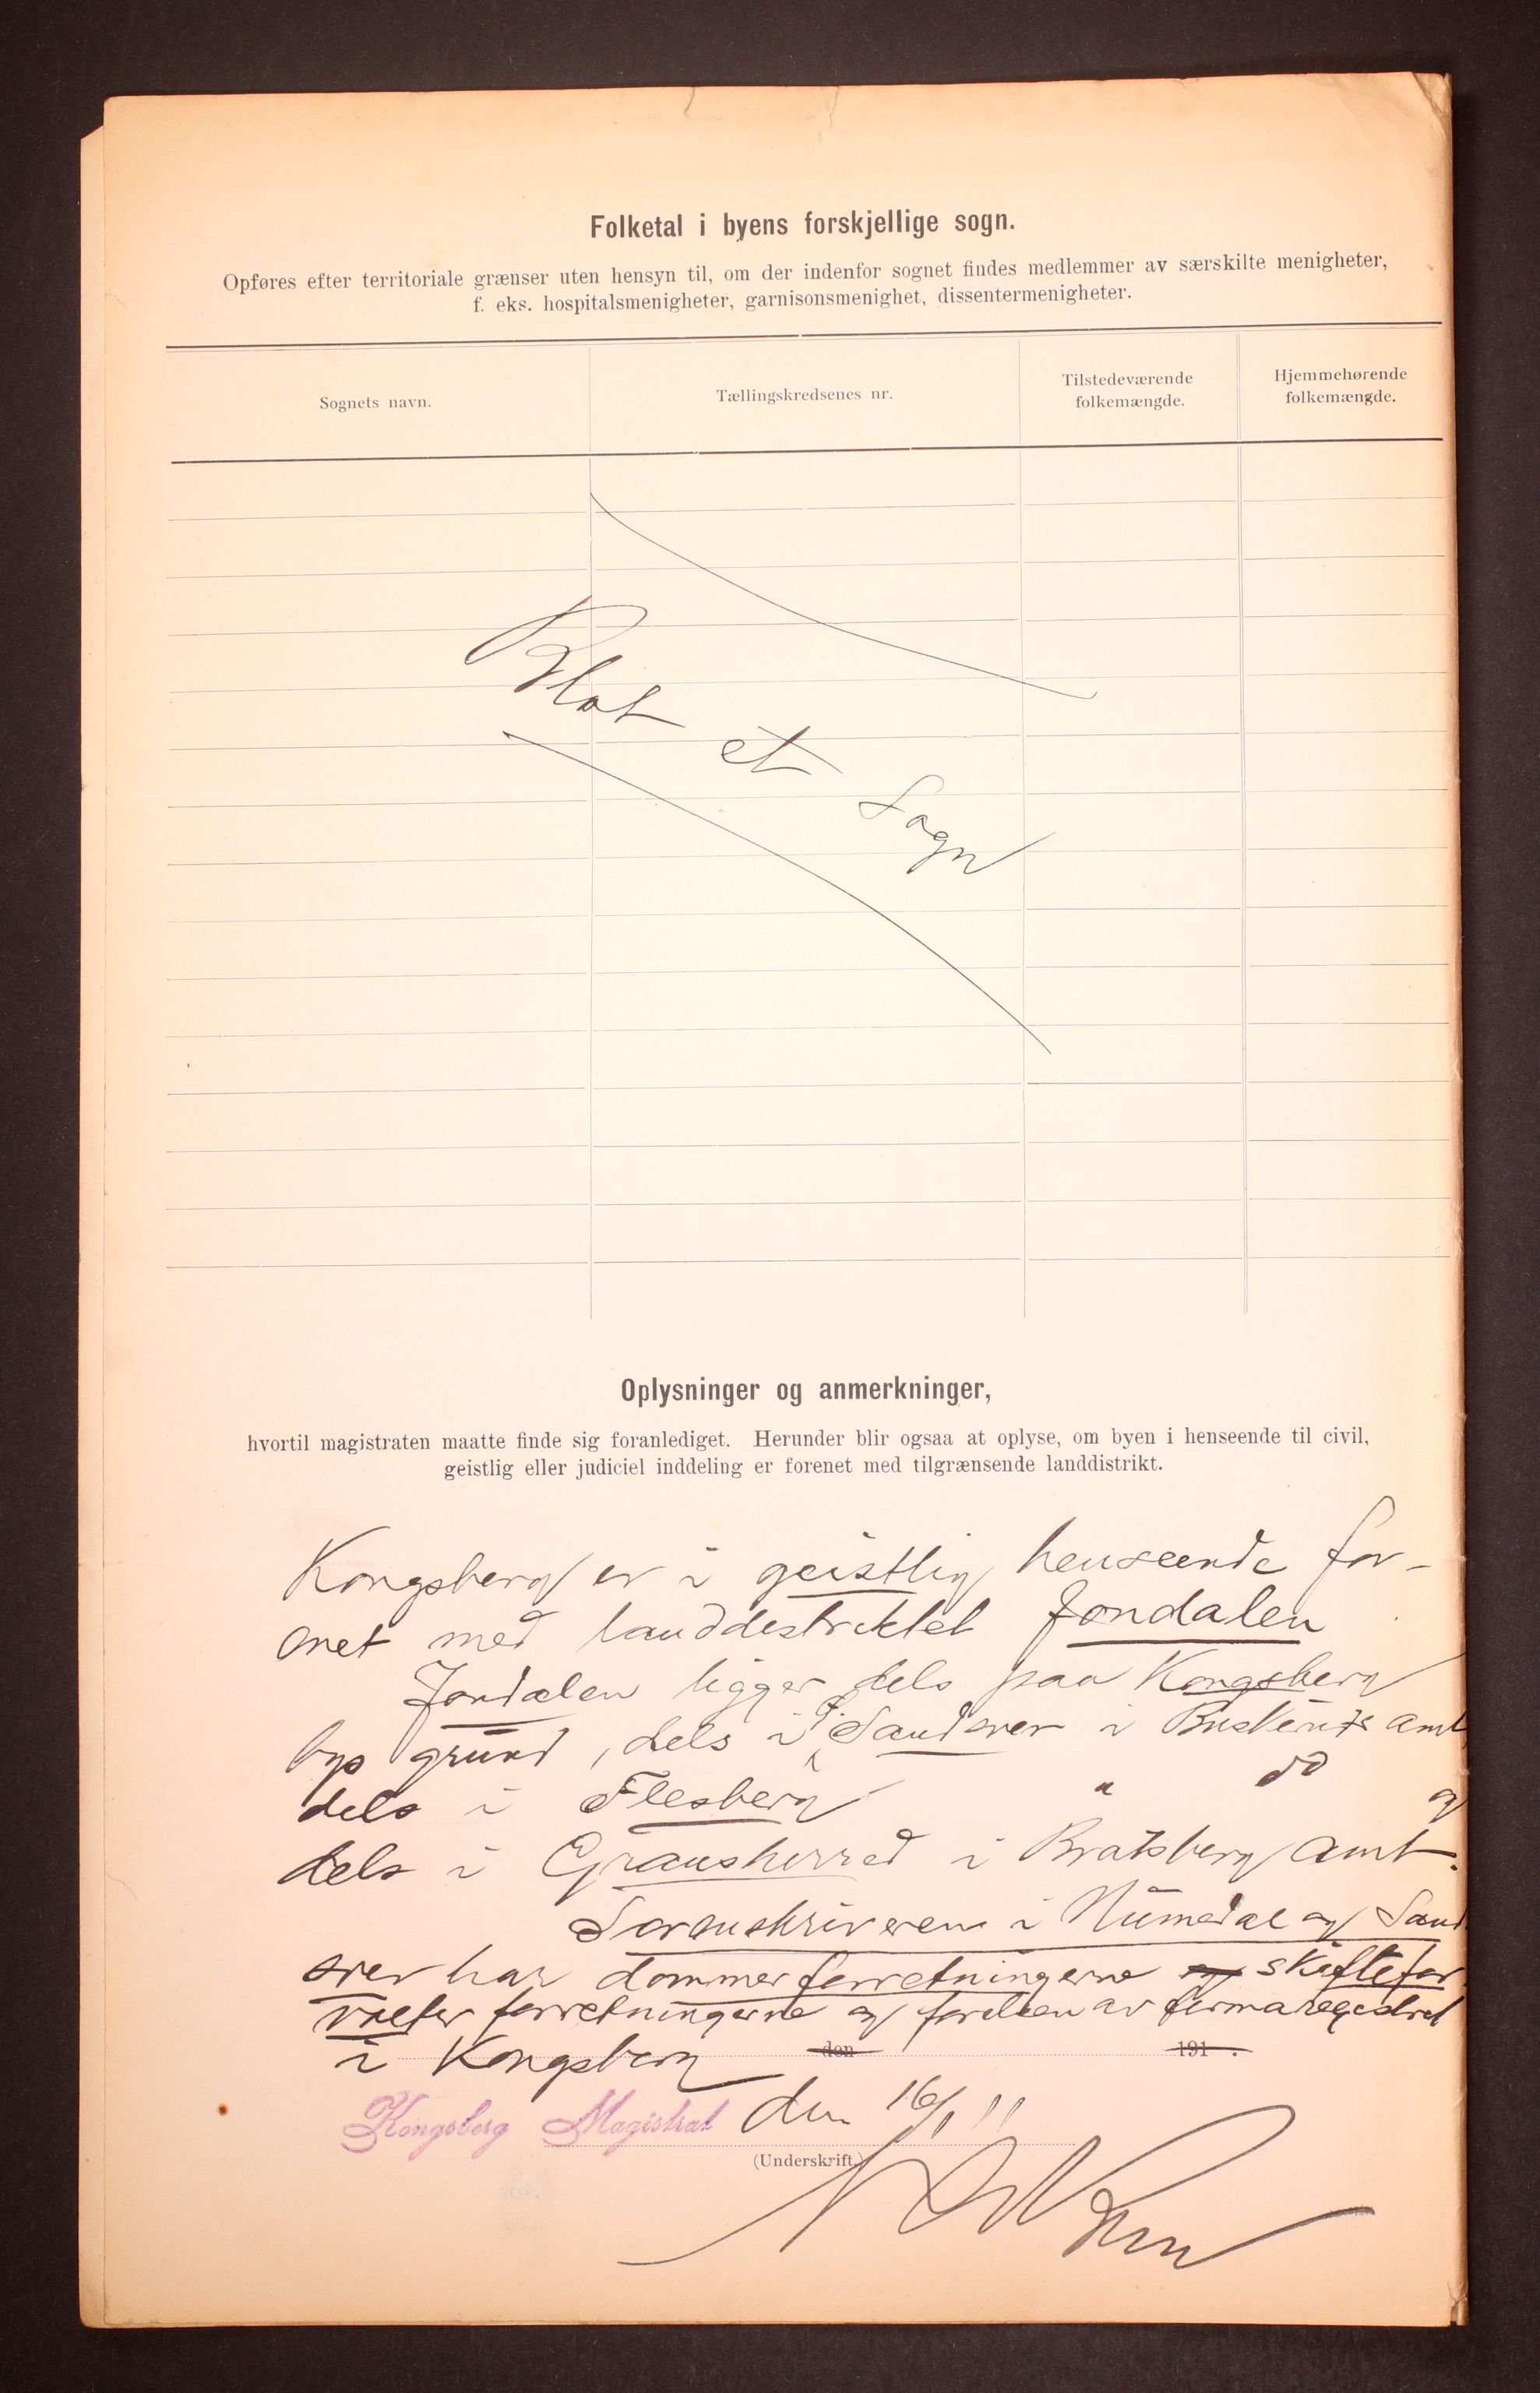 Folketal i byens forskjellige sogn.
Opføres efter territoriale grænser uten hensyn til, om der indenfor sognet findes medlemmer av særskilte menigheter,
f. eks. hospitalsmenigheter, garnisonsmenighet, dissentermenigheter.
Sognets navn.
Tællingskredsenes nr.
Tilstedeværende
folkemængde.
Hjemmehørende
folkemængde.
Blot et Sogn
Oplysninger og anmerkninger,
hvortil magistraten maatte finde sig foranlediget. Herunder blir ogsaa at oplyse, om byen i henseende til civil,
geistlig eller judiciel inddeling er forenet med tilgrænsende landdistrikt.
Kongsberg er i geistlig henseende for-
enet med landdistriktet Jondalen
Jondalen ligger dels paa Kongsberg
bys grund, dels i Sandsver i Buskeruds amt
dels i Flesberg " do og
dels i Gransherred i Bratsberg amt.
Sorenskriveren i Numedal og Sand
sver har dommerforretningerne og skiftefor
valter forretningerne og førelsen av firmaregistret
i Kongsberg den 191 .
Kongsberg Magistrat den 16/1 11
(Underskrift.)